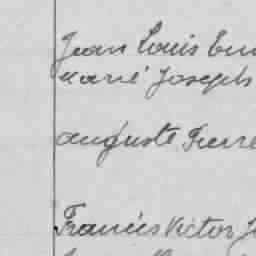 Jean Louis Em
Marie Joseph
Auguste Pierre
Francis Victor J